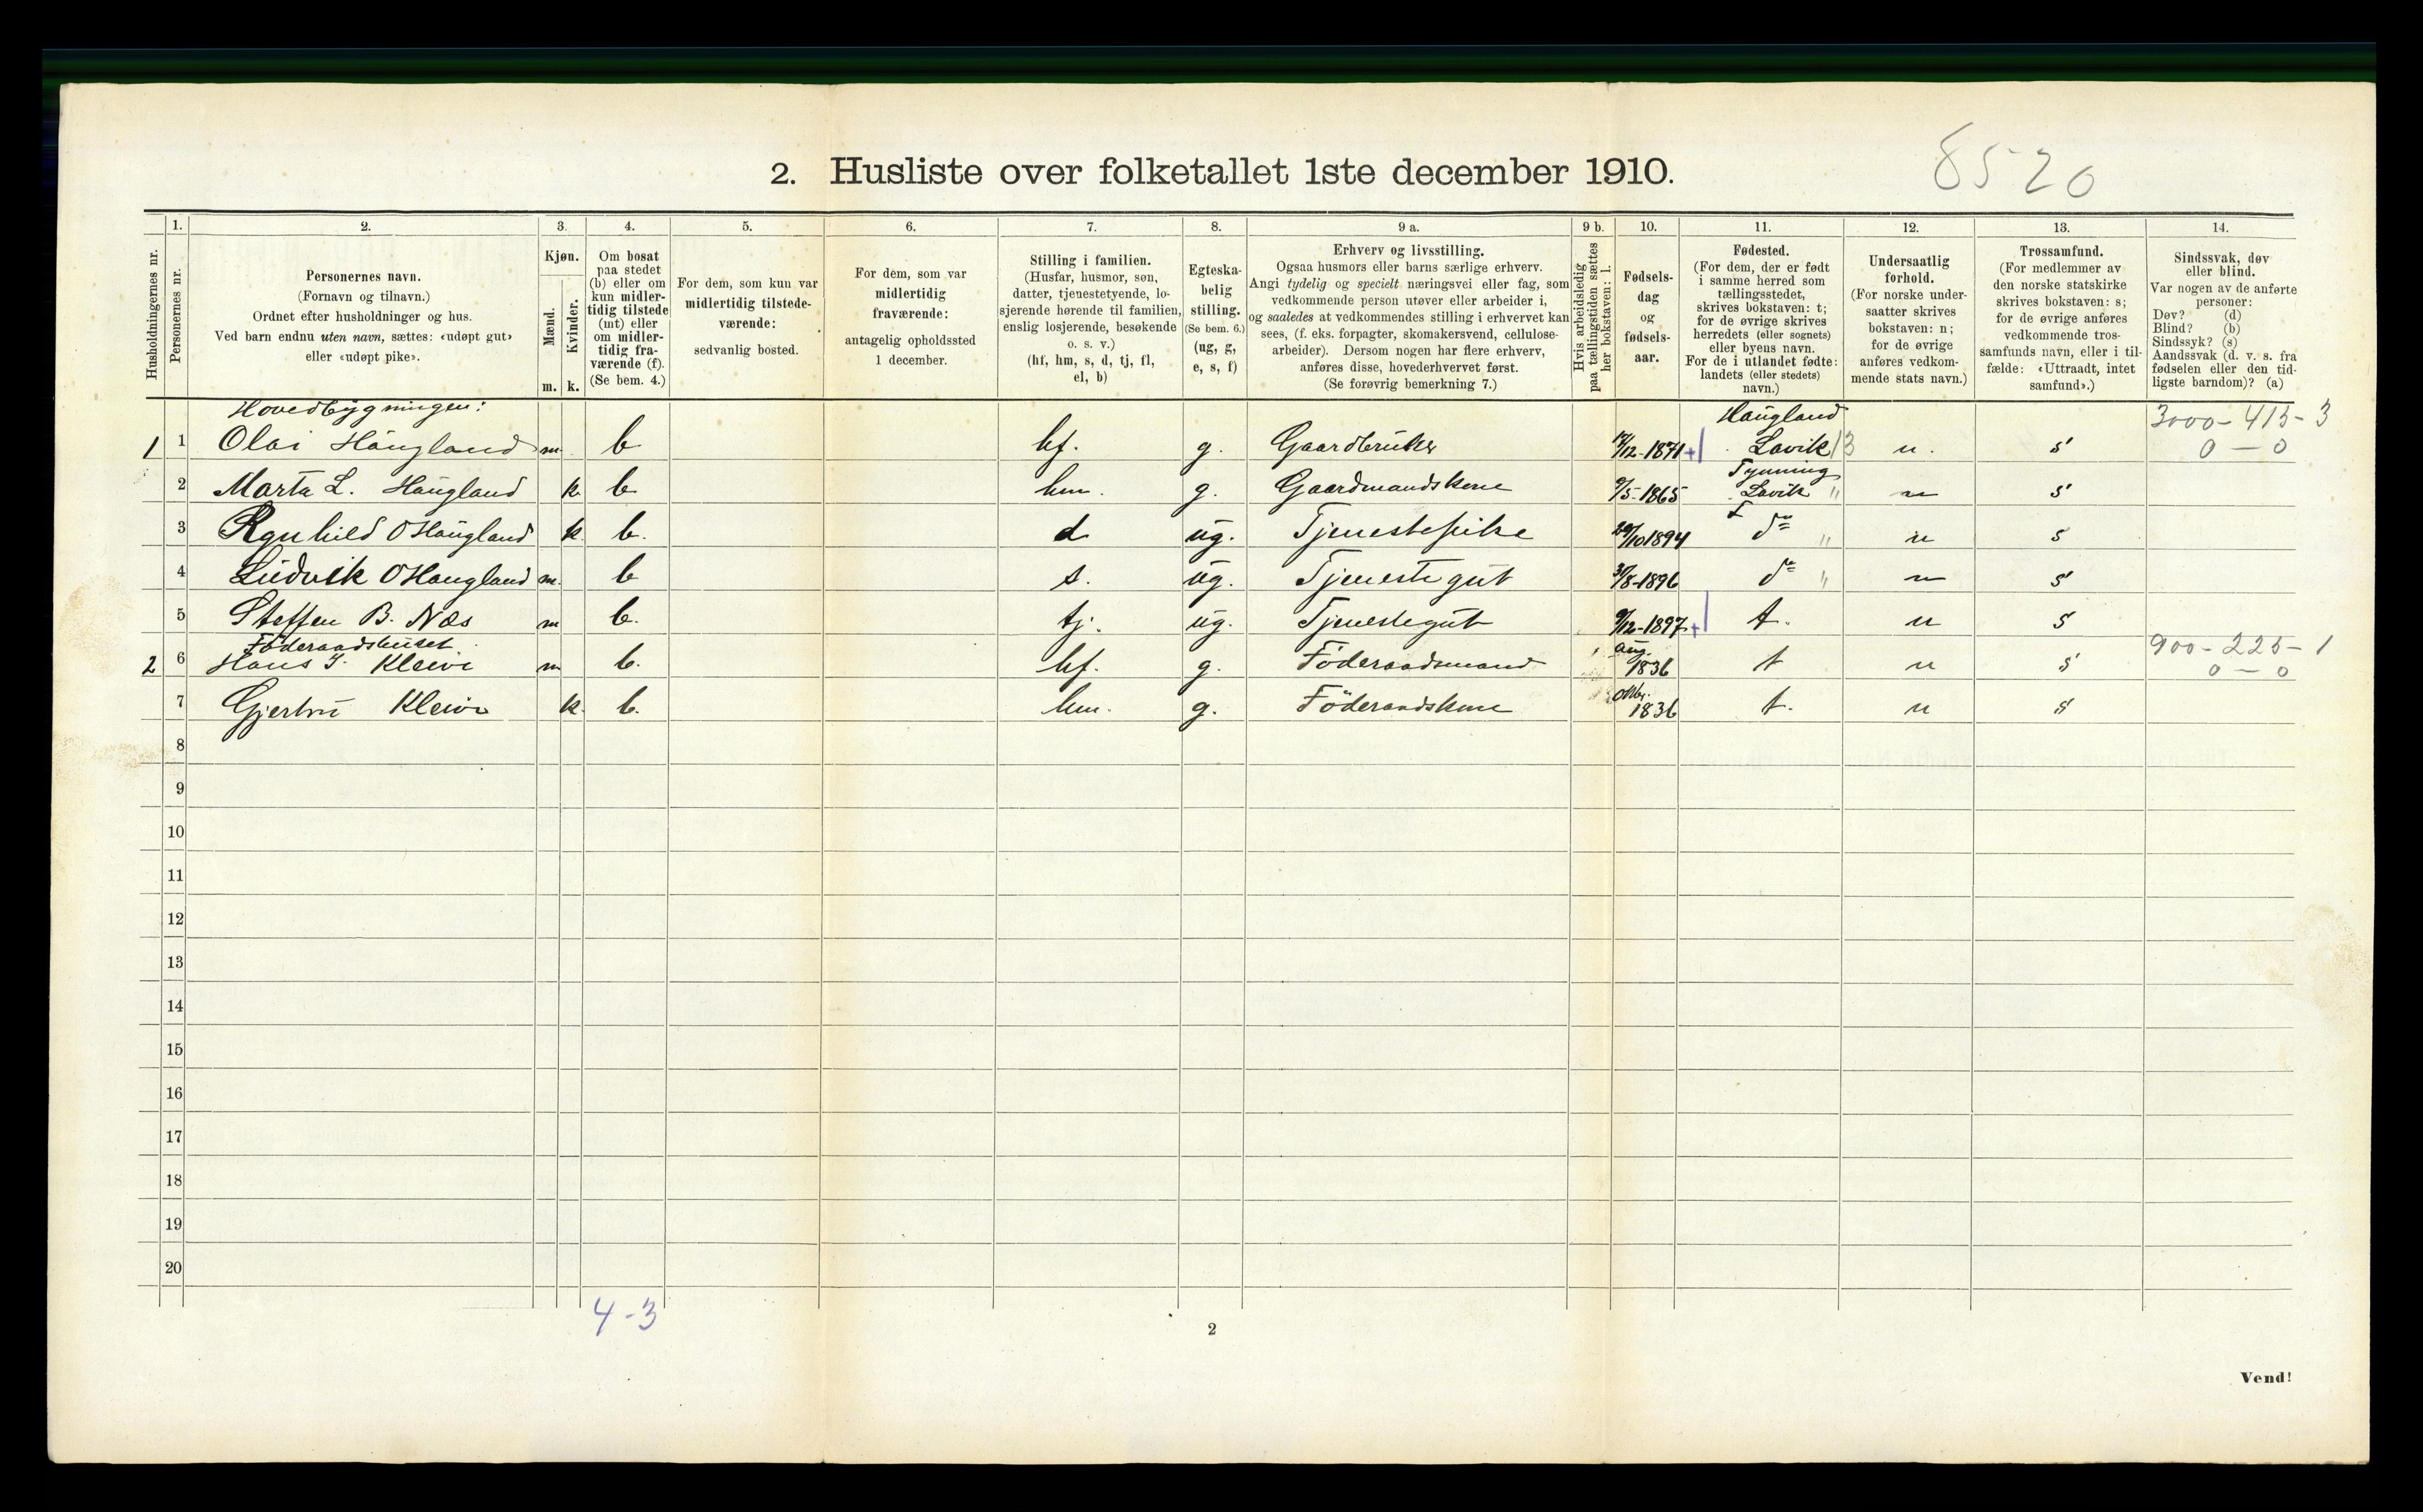 8520
2. Husliste over folketallet 1ste december 1910.
1. 2. 3. 4. 5. 6. 7. 8. 9 a. 9 b. 10. 11. 12. 13. 14.
Husholdningernes nr.
Personernes nr.
Personernes navn.
(Fornavn og tilnavn.)
Ordnet efter husholdninger og hus.
Ved barn endnu uten navn, sættes: «udøpt gut»
eller «udøpt pike».
Kjøn.
Mænd.
Kvinder.
m. k.
Om bosat
paa stedet
(b) eller om
kun midler-
tidig tilstede
(mt) eller
om midler-
tidig fra-
værende (f).
(Se bem. 4.)
For dem, som kun var
midlertidig tilstede-
værende:
sedvanlig bosted.
For dem, som var
midlertidig
fraværende:
antagelig opholdssted
1 december.
Stilling i familien.
(Husfar, husmor, søn,
datter, tjenestetyende, lo-
sjerende hørende til familien,
enslig losjerende, besøkende
o. s. v.)
(hf, hm, s, d, tj, fl,
el, b)
Egteska-
belig
stilling.
(Se bem. 6.)
(ug, g,
e, s, f)
Erhverv og livsstilling.
Ogsaa husmors eller barns særlige erhverv.
Angi tydelig og specielt næringsvei eller fag, som
vedkommende person utøver eller arbeider i,
og saaledes at vedkommendes stilling i erhvervet kan
sees, (f. eks. forpagter, skomakersvend, cellulose-
arbeider). Dersom nogen har flere erhverv,
anføres disse, hovederhvervet først.
(Se forøvrig bemerkning 7.)
Hvis arbeidsledig
paa tællingstiden sættes
her bokstaven: l.
Fødsels-
dag
og
fødsels-
aar.
Fødested.
(For dem, der er født
i samme herred som
tællingsstedet,
skrives bokstaven: t;
for de øvrige skrives
herredets (eller sognets)
eller byens navn.
For de i utlandet fødte:
landets (eller stedets)
navn.)
Undersaatlig
forhold.
(For norske under-
saatter skrives
bokstaven: n;
for de øvrige
anføres vedkom-
mende stats navn.)
Trossamfund.
(For medlemmer av
den norske statskirke
skrives bokstaven: s;
for de øvrige anføres
vedkommende tros-
samfunds navn, eller i til-
fælde: «Uttraadt, intet
samfund».)
Sindssvak, døv
eller blind.
Var nogen av de anførte
personer:
Døv? (d)
Blind? (b)
Sindssyk? (s)
Aandssvak (d. v. s. fra
fødselen eller den tid-
ligste barndom)? (a)
Hovedbygningen: Haugland 3000-415-3
1 1 Olai Haugland m. b hf. g. Gaardbruker 17/12-1871 + Lavik 13 n. s 0-0
Tynning
2 Marta L. Haugland k b hm. g. Gaardmandskone 9/5-1865 Lavik " n s
3 Rgnhild O Haugland k b. d ug. Tjenestepike 29/10 1894 do " n s
4 Ludvik O Haugland m. b s. ug. Tjenestegut 30/8-1896 do " n s
5 Steffen B. Næs m b. tj. ug. Tjenestegut 9/12-1897 + t. n s
Föderaadshuset aug. 900-225-1
2 6 Hans I. Kleivi m b. hf. g. Föderaadsmand 1836 t n s 0-0
oktbr.
7 Gjertru Kleivi k. b. hm. g. Föderaadskone 1836 t. n s
8
9
10
11
12
13
14
15
16
17
18
19
20
4-3
2
Vend!